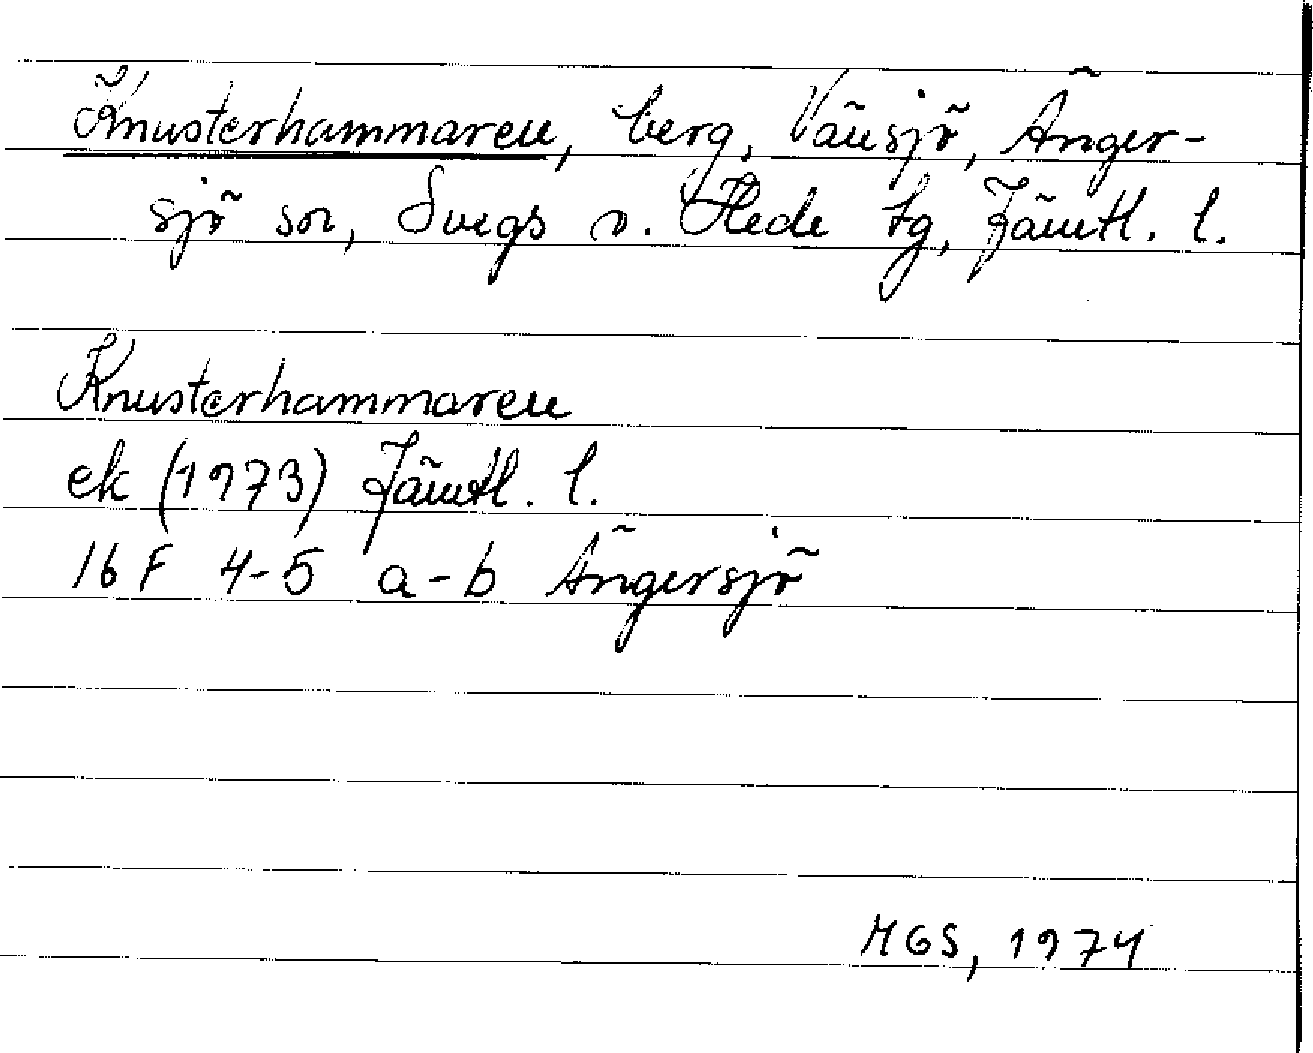 Knusterhammaren, berg, Vänsjö, Änger-
sjö sn, Svegs o. Hede tg, Jämtl. l.
Knusterhammaren
ek (1973) Jämtl. l.
16 F 4-5 a-b Ängersjö
MGS, 1974